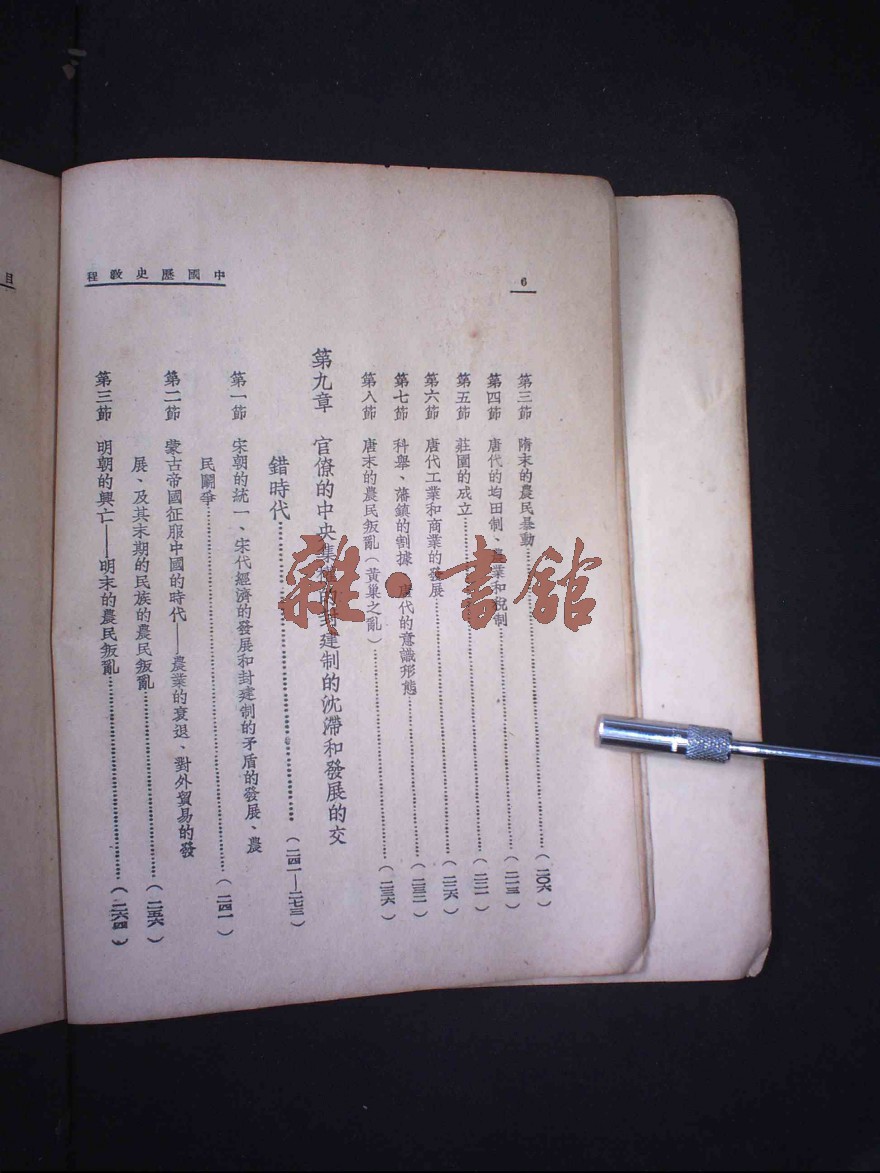 中國歷史教程
6
第三節 隋末的農民暴動……(二〇六)
第四節 唐代的均田制、農業和稅制……(二一三)
第五節 莊園的成立……(二二二)
第六節 唐代工業和商業的發展……(二二六)
第七節 科舉、藩鎮的割據 唐代的意識形態……(二三二)
第八節 唐末的農民叛亂(黃巢之亂)……(二三六)
第九章 官僚的中央集權的封建制的沈滯和發展的交
錯時代……(二四一—二七三)
第一節 宋朝的統一、宋代經濟的發展和封建制的矛盾的發展、農
民鬭爭……(二四一)
第二節 蒙古帝國征服中國的時代——農業的衰退、對外貿易的發
展、及其末期的民族的農民叛亂……(二五六)
第三節 明朝的興亡——明末的農民叛亂……(二六四)
目
雜·書館